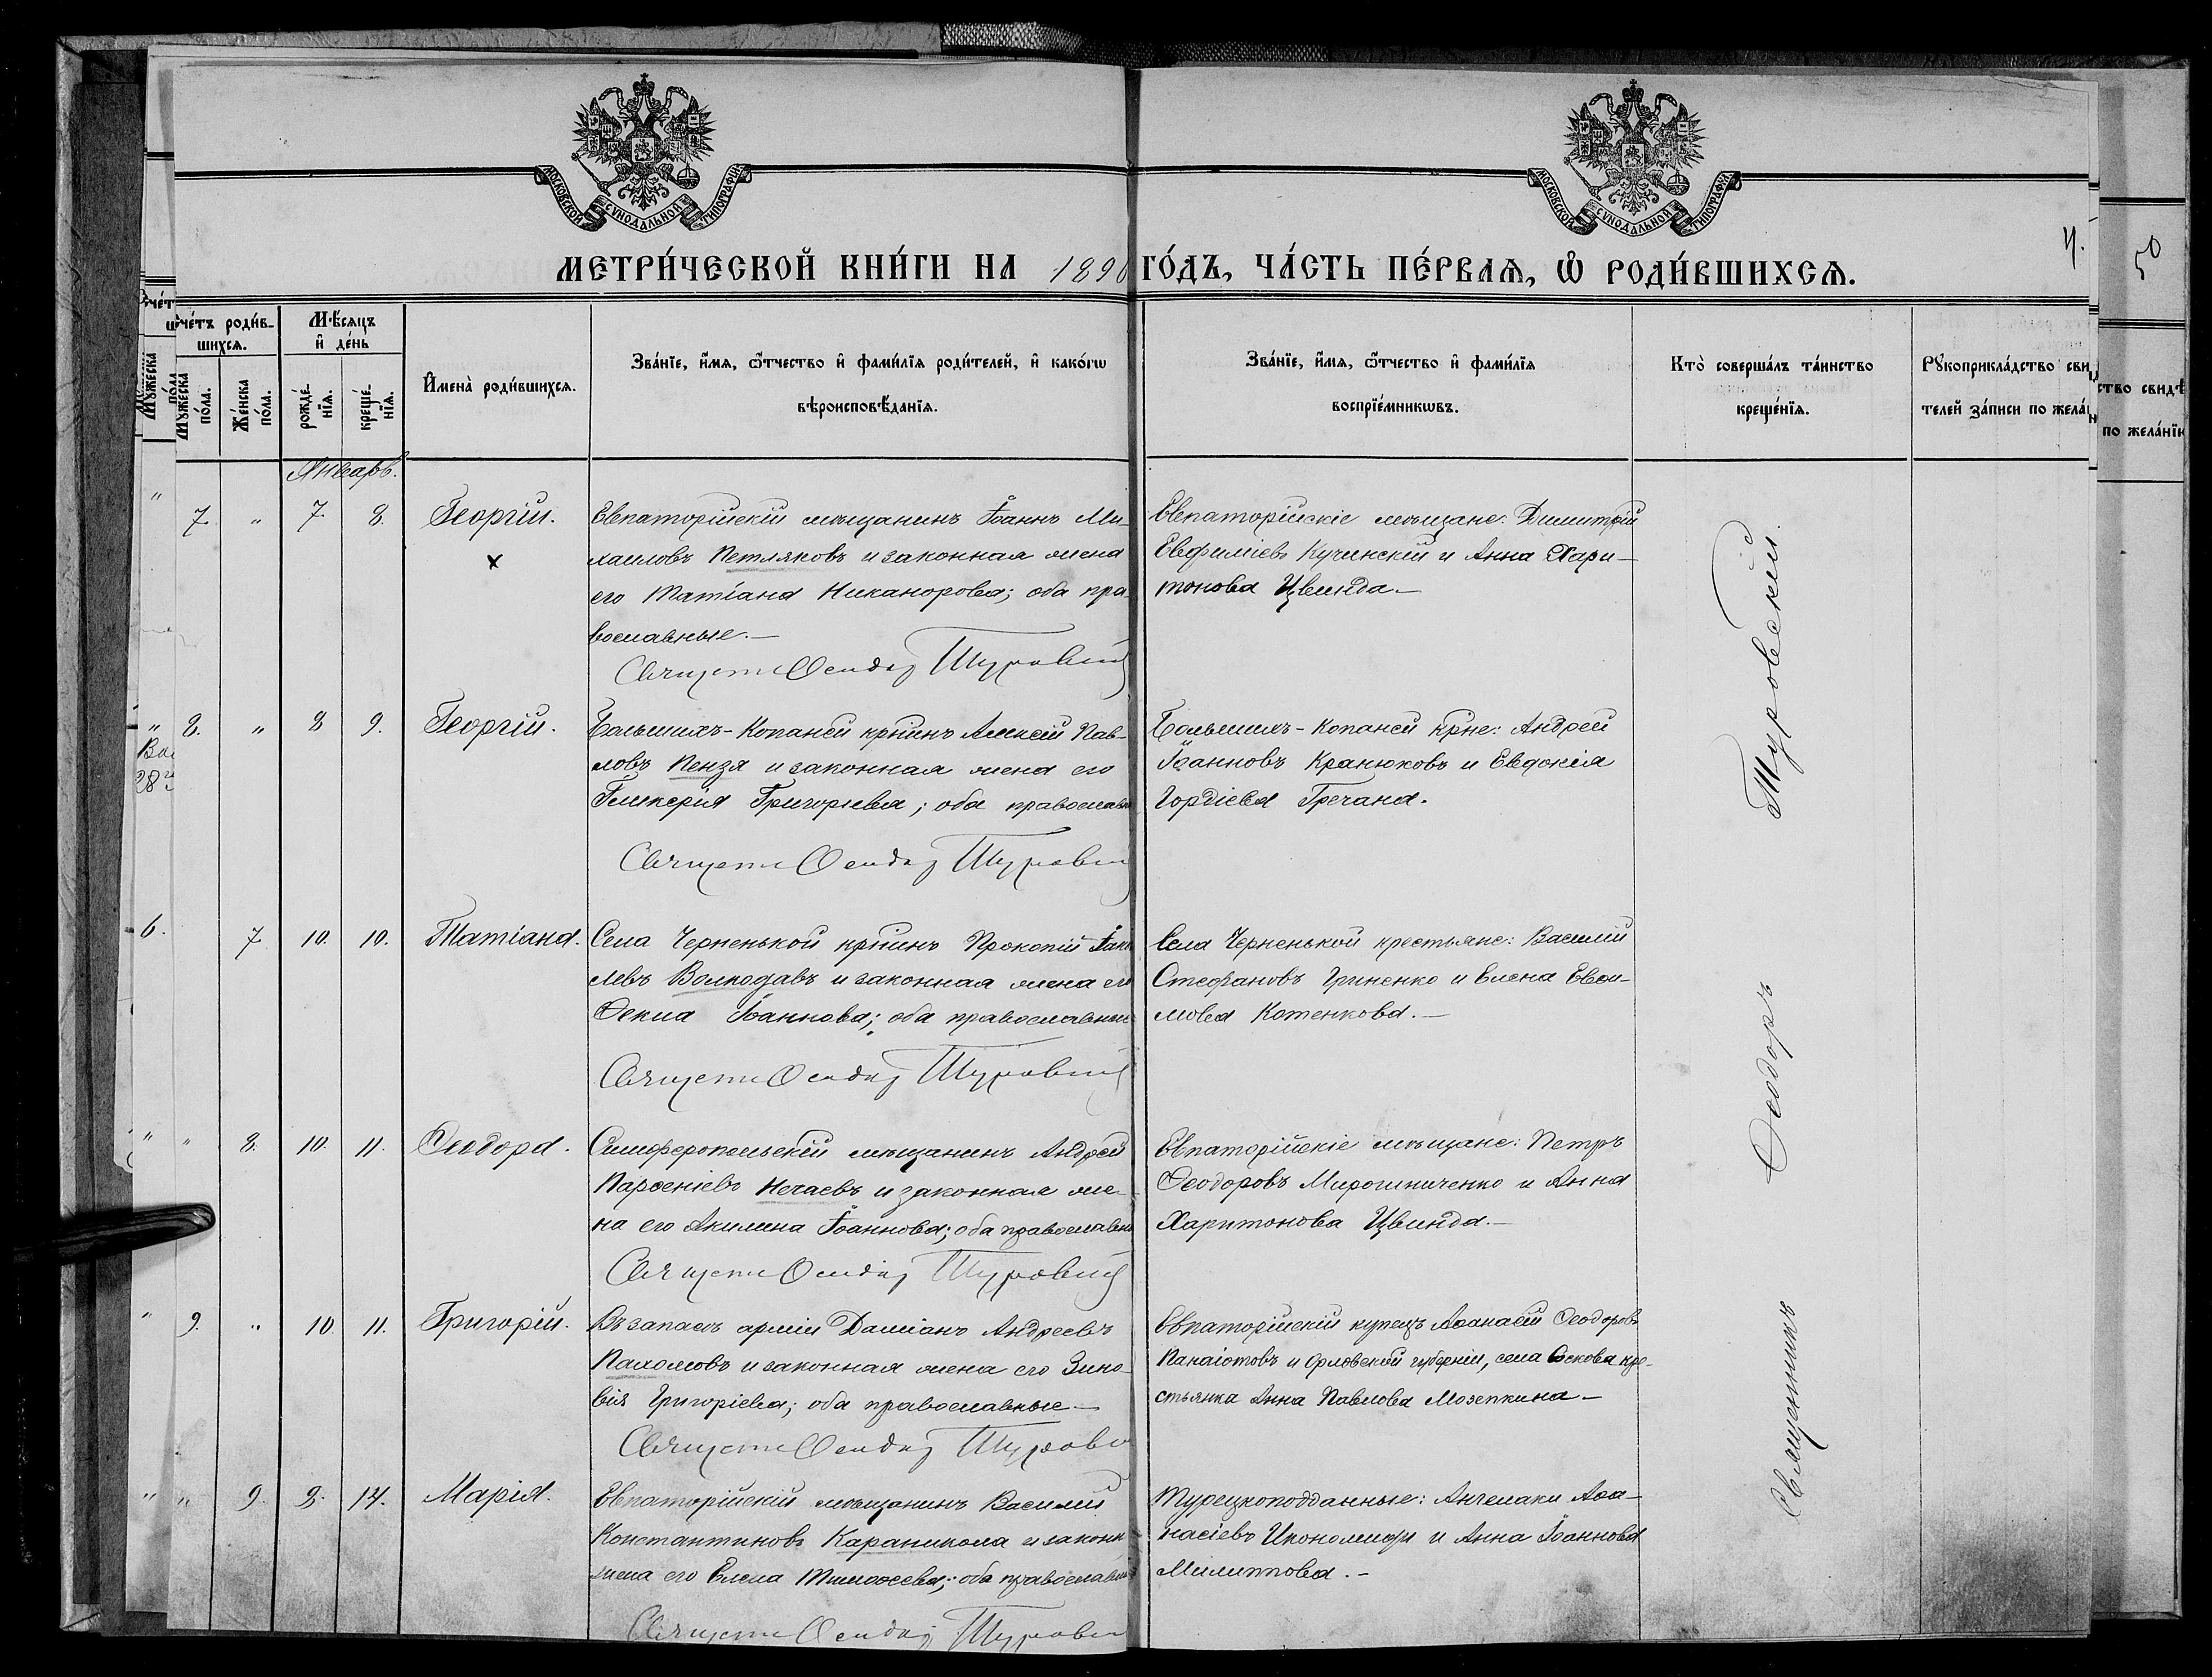 МОСКОВСКОЙ СѴНОДАЛЬНОЙ ТИПОГРАФІИ
МОСКОВСКОЙ СѴНОДАЛЬНОЙ ТИПОГРАФІИ
4.
50
МЕТРИ́ЧЕСКОЙ КНИ́ГИ НА 1890 ГО́ДЪ, ЧА́СТЬ ПЕ́РВАѦ, Ѽ РОДИ́ВШИХСѦ.
Сче́тъ роди́в-
шихсѧ.
Мѣ́сѧцъ
и҆ де́нь
Мꙋжеска
по́ла.
Же́нска
по́ла.
рожде́-
нїѧ.
креще́-
нїѧ.
И҆мена̀ роди́вшихсѧ.
Зва́нїе, и҆́мѧ, ѻ҆́тчество и҆ фами́лїѧ роди́телей, и҆ како́гѡ
вѣроисповѣ́данїѧ.
Зва́нїе, и҆́мѧ, ѻ҆́тчество и҆ фами́лїѧ
воспрїе́мникѡвъ.
Кто̀ соверша́лъ та́инство
креще́нїѧ.
Рꙋкоприкла́дство сви
телей за́писи по жела́
ство свидѣ
по жела́нїю
Январь.
7. " 7. 8. Георгій.
Евпаторійскій мѣщанинъ Іоаннъ Ми-
хаиловъ Петляковъ и законная жена
его Татіана Никанорова; оба пра-
вославные.—
Священ Ѳеодор Туровскій
Евпаторійскіе мѣщане: Димитрій
Евфиміевъ Кучинскій и Анна Хари-
тонова Цвинда.—
8. " 8 9. Георгій.
Большихъ-Копаней кр҃нинъ Алексій Пав-
ловъ Пензя и законная жена его
Гликерія Григорьева; оба православн
Священ Ѳеодор Туровскій
Большихъ-Копаней кр҃не: Андрей
Іоанновъ Кранюковъ и Евдокія
Гордіева Гречана.
7 10. 10. Татіана.
Села Черненькой кр҃нинъ Прокопій Іак
левъ Волкодавъ и законная жена его
Ѳекла Іоаннова; оба православные
Священ Ѳеодор Туровскій
Села Черненькой крестьяне: Василій
Стефановъ Гриненко и Елена Евѳи-
мова Котенкова.—
" 8. 10. 11. Ѳеодора.
Симферопольскій мѣщанинъ Андрей
Парѳеніевъ Нечаевъ и законная же-
на его Акилина Іоаннова; оба православн
Священ Ѳеодор Туровскій
Евпаторійскіе мѣщане: Петръ
Ѳеодоровъ Мирошниченко и Анна
Харитонова Цвинда.—
9. " 10. 11. Григорій.
Въ запасѣ арміи Даміанъ Андреевъ
Пахомовъ и законная жена его Зино-
вія Григоріева; оба православные—
Священ Ѳеодор Туровскій
Евпаторійскій купецъ Аѳанасій Ѳеодоровъ
Панаіотовъ и Орловской губерніи, села Оскова кре-
стьянка Анна Павлова Мозепкина—
" 9. 2. 14. Марія.
Евпаторійскій мѣщанинъ Василій
Константиновъ Караникола и законн
жена его Елена Тимоѳеева; оба православны
Священ Ѳеодор Туровскій
Турецкоподданные: Анчелаки Аѳа-
насіевъ Икономиди и Анна Іоаннова
Милиппова.—
Священникъ Ѳеодоръ Туровскій.